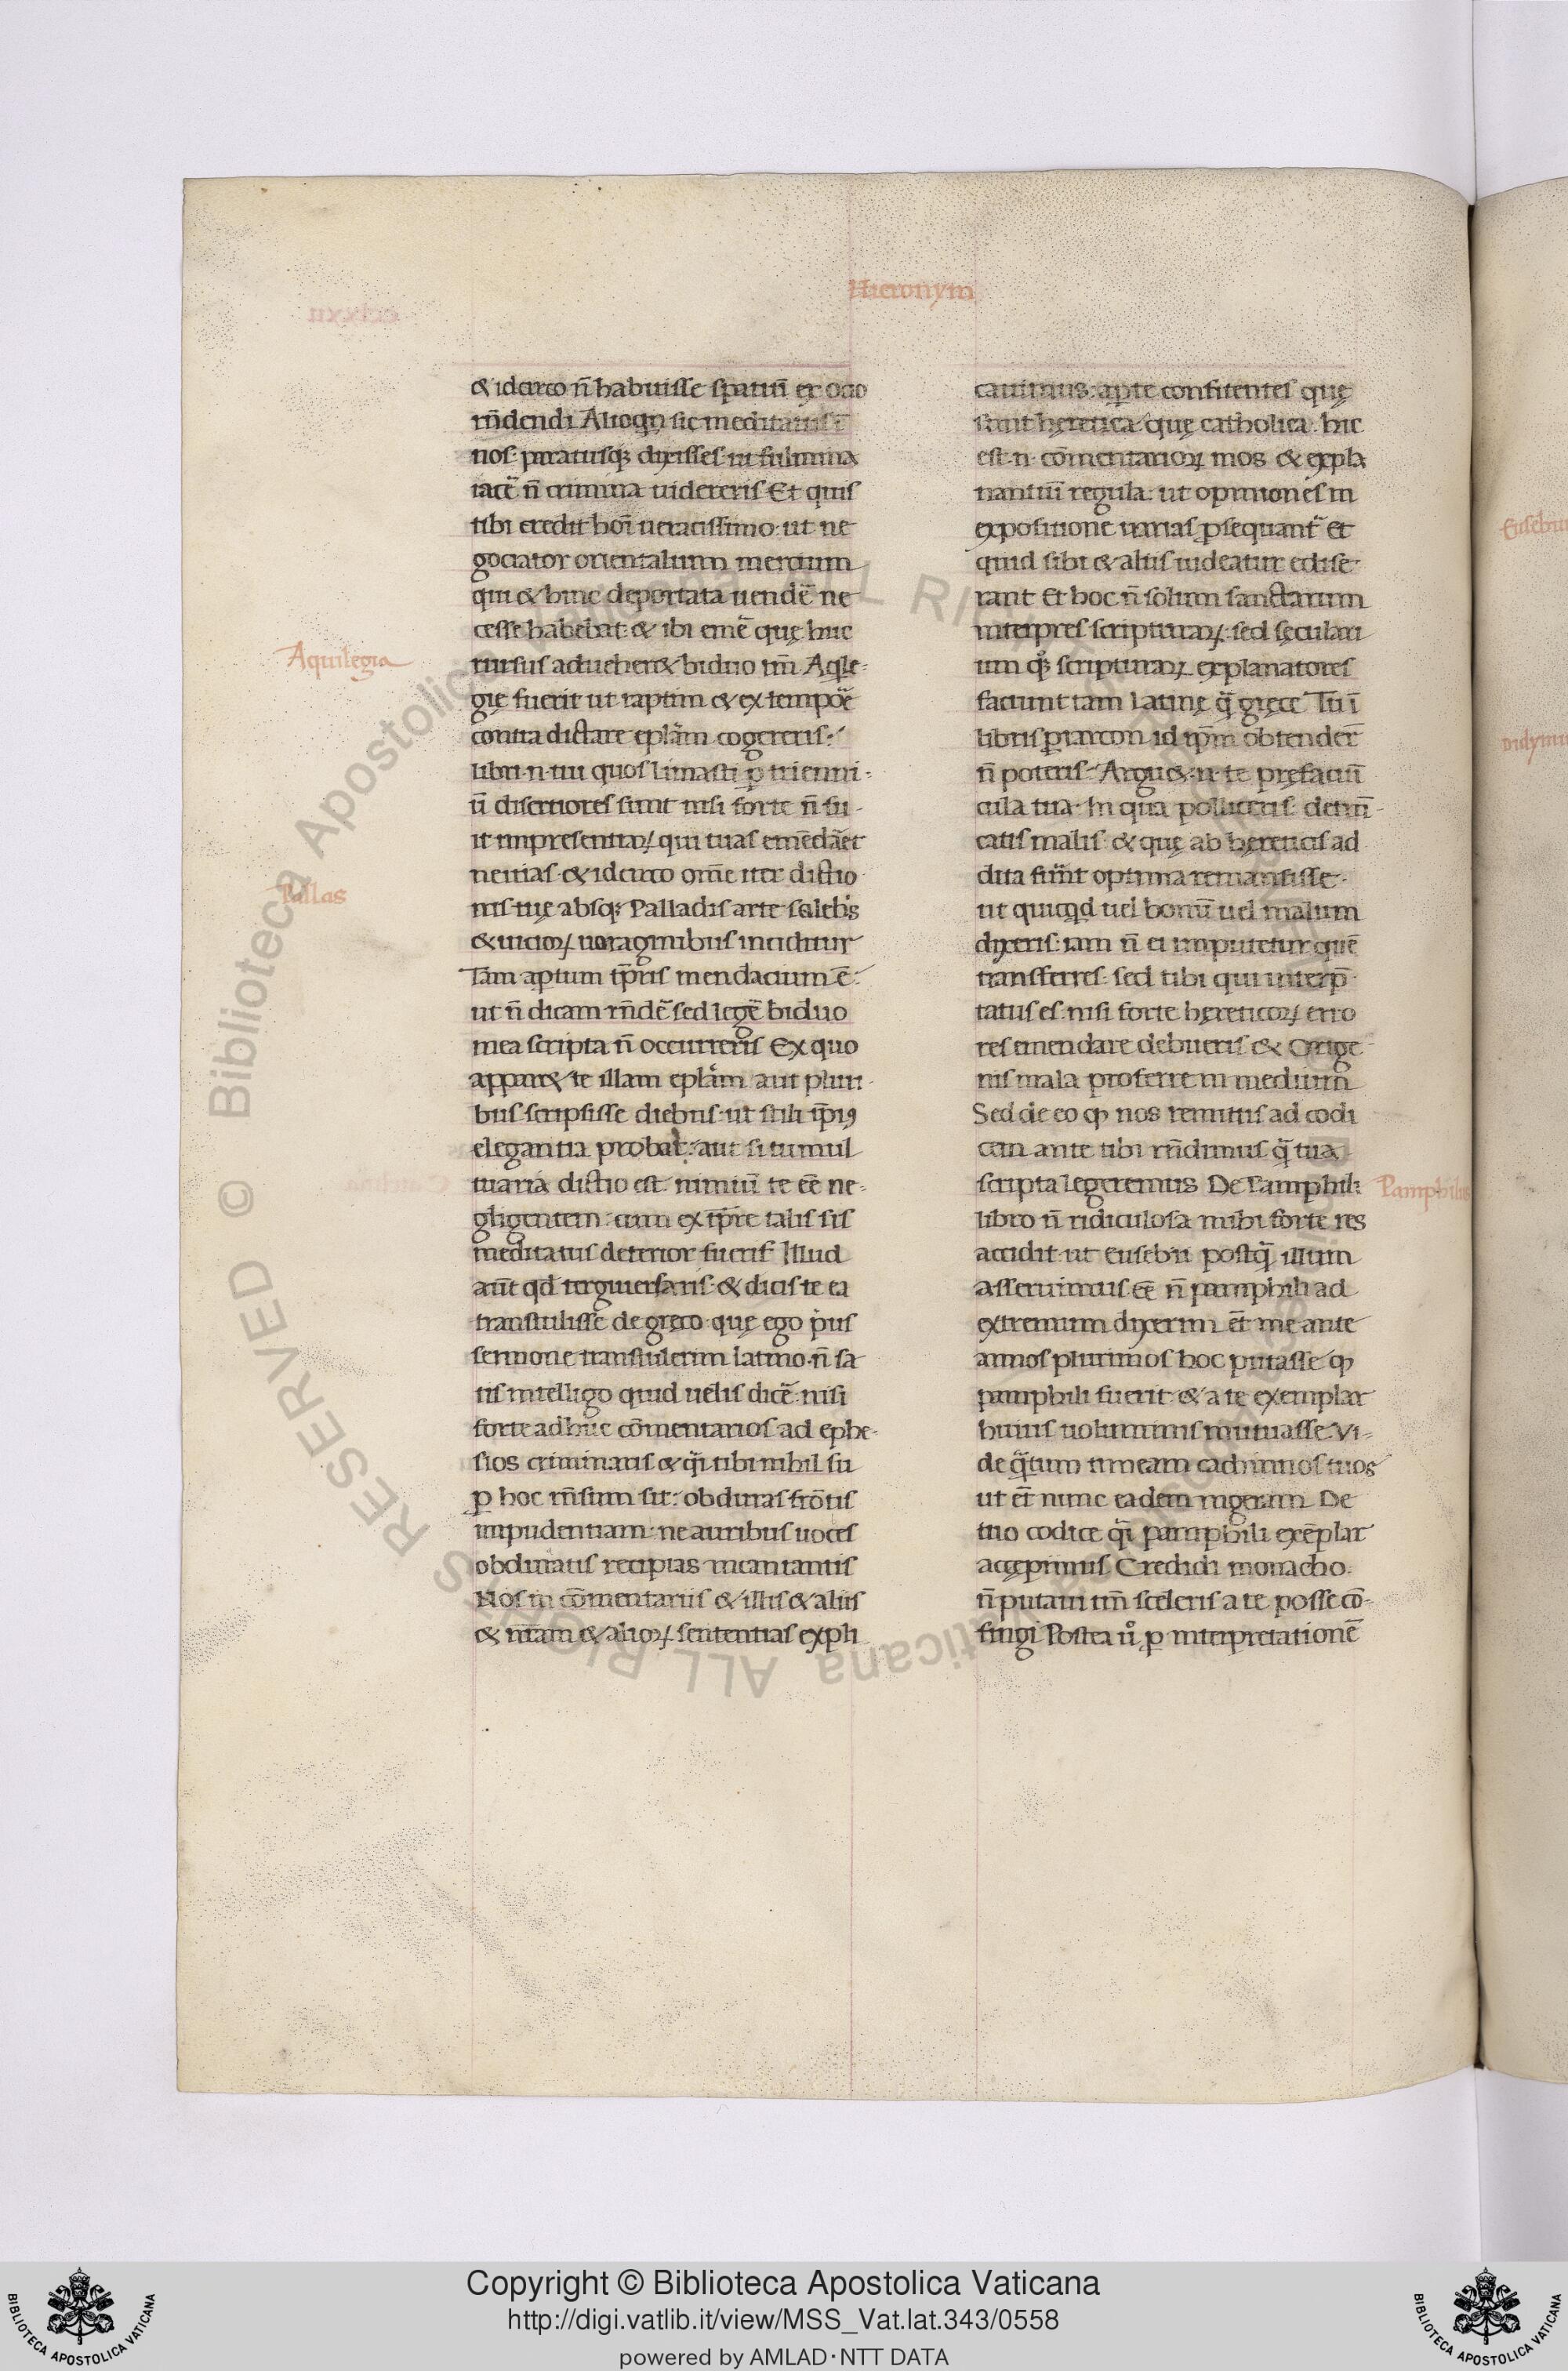 Hieronym
& idcirco n̄ habuisse spatiū ex ocio
rn̄dendi Alioqn sic meditatus i
nos paratusq; dixisses ut fulmina
iacē n̄ crimina uidereris Et quis
tibi credit hoi ueracissimo ut ne
gociator orientalium mercium
qui & hinc deportata uendē ne
cesse habebat & ibi emē quę huc
rursus adueheret biduo tm̄ Aqle-
gię fuerit ut raptim & ex tempoē
contra dictare eplām cogereris
libri n. tui quos limasti p trienni-
ū disertiores sunt nisi forte n̄ fu-
it impresentiaꝝ qui tuas emēdāet
nenias & idcirco om̄e iter dictio
nis tuę absq; Palladis arte saleb's
& uicioꝝ uoraginibus inciditur
Tam aptum tp̄ris mendacium ē
ut n̄ dicam rn̄dē sed legē biduo
mea scripta n̄ occurreris Ex quo
apparet te illam eplām aut pluri-
bus scripsisse diebus ut stili ip̄iꝰ
elegantia probat aut si tumul
tuaria dictio est nimiū te eē ne-
gligentem cum ex tp̄re talis sis
meditatus deterior fueris Illud
aūt qd terguiersaris & dicis te ea
transtulisse de gręco quę ego p̓us
sermone transtulerim latino n̄ sa
tis intelligo quid uelis dicē nisi
forte ad huc cōmentarios ad ephe-
sios criminaris & q̄i tibi nihil su
p hoc rn̄sum sit obduras frōtis
impudentiam ne auribus uoces
obduratis recipias incantantis
Nos in cōmentariis & illis & aliis
& nr̄am & alioꝝ sententias expli
cauimus apte confitentes quę
sunt hęretica quę catholica hic
est n. cōmentarioꝝ mos & expla
nantiū regula ut opiniones in
expositione uarias p̱sequant̄ Et
quid sibi & aliis uideatur edise-
rant Et hoc n̄ solum sanctarum
interpres scripturaꝝ sed sęculari
um q̊; scripturaꝝ explanatores
faciunt tam latinę q̄ gręcę Tu i
libris piarcon id ip̄m obtender̄
n̄ poteris Arguet n. te pręfaciū
cula tua In qua polliceris detrū-
catis malis & quę ab hęreticis ad
dita fūnt optima remansisse
ut quicqd uel bonū uel malum
dixeris iam n̄ ei imputetur quē
transferres sed tibi qui interp̄
tatus es nisi forte hęreticoꝝ erro
res emendare debueris & Orige
nis mala proferre in medium
Sed de eo qđ nos remittis ad codi
cem ante tibi rn̄dimus q̄ tua
scripta legeremus De Pamphili
libro n̄ ridiculosa mihi forte res
accidit ut eusebii postq̄ illum
asseruimus eē n̄ pamphili ad
extremum dixerim et̄ me ante
annos plurimos hoc putasse qđ
pamphili fuerit & a te exemplar
huius uoluminis mutuasse Vi-
de q̄tum timeam cachinnos tuos
ut et̄ nunc eadem ingeram De
tuo codice q̄i pamphili exēplar
accępimus Credidi monacho
n̄ putaui tm̄ sceleris a te posse cō-
fingi Postea ů p interpretationē
Aquilegia
Pallas
Pamphilus
© Biblioteca Apostolica Vaticana ALL RIGHTS RESERVED
Copyright © Biblioteca Apostolica Vaticana
http://digi.vatlib.it/view/MSS_Vat.lat.343/0558
powered by AMLAD·NTT DATA
BIBLIOTECA APOSTOLICA VATICANA
BIBLIOTECA APOSTOLICA VATICANA